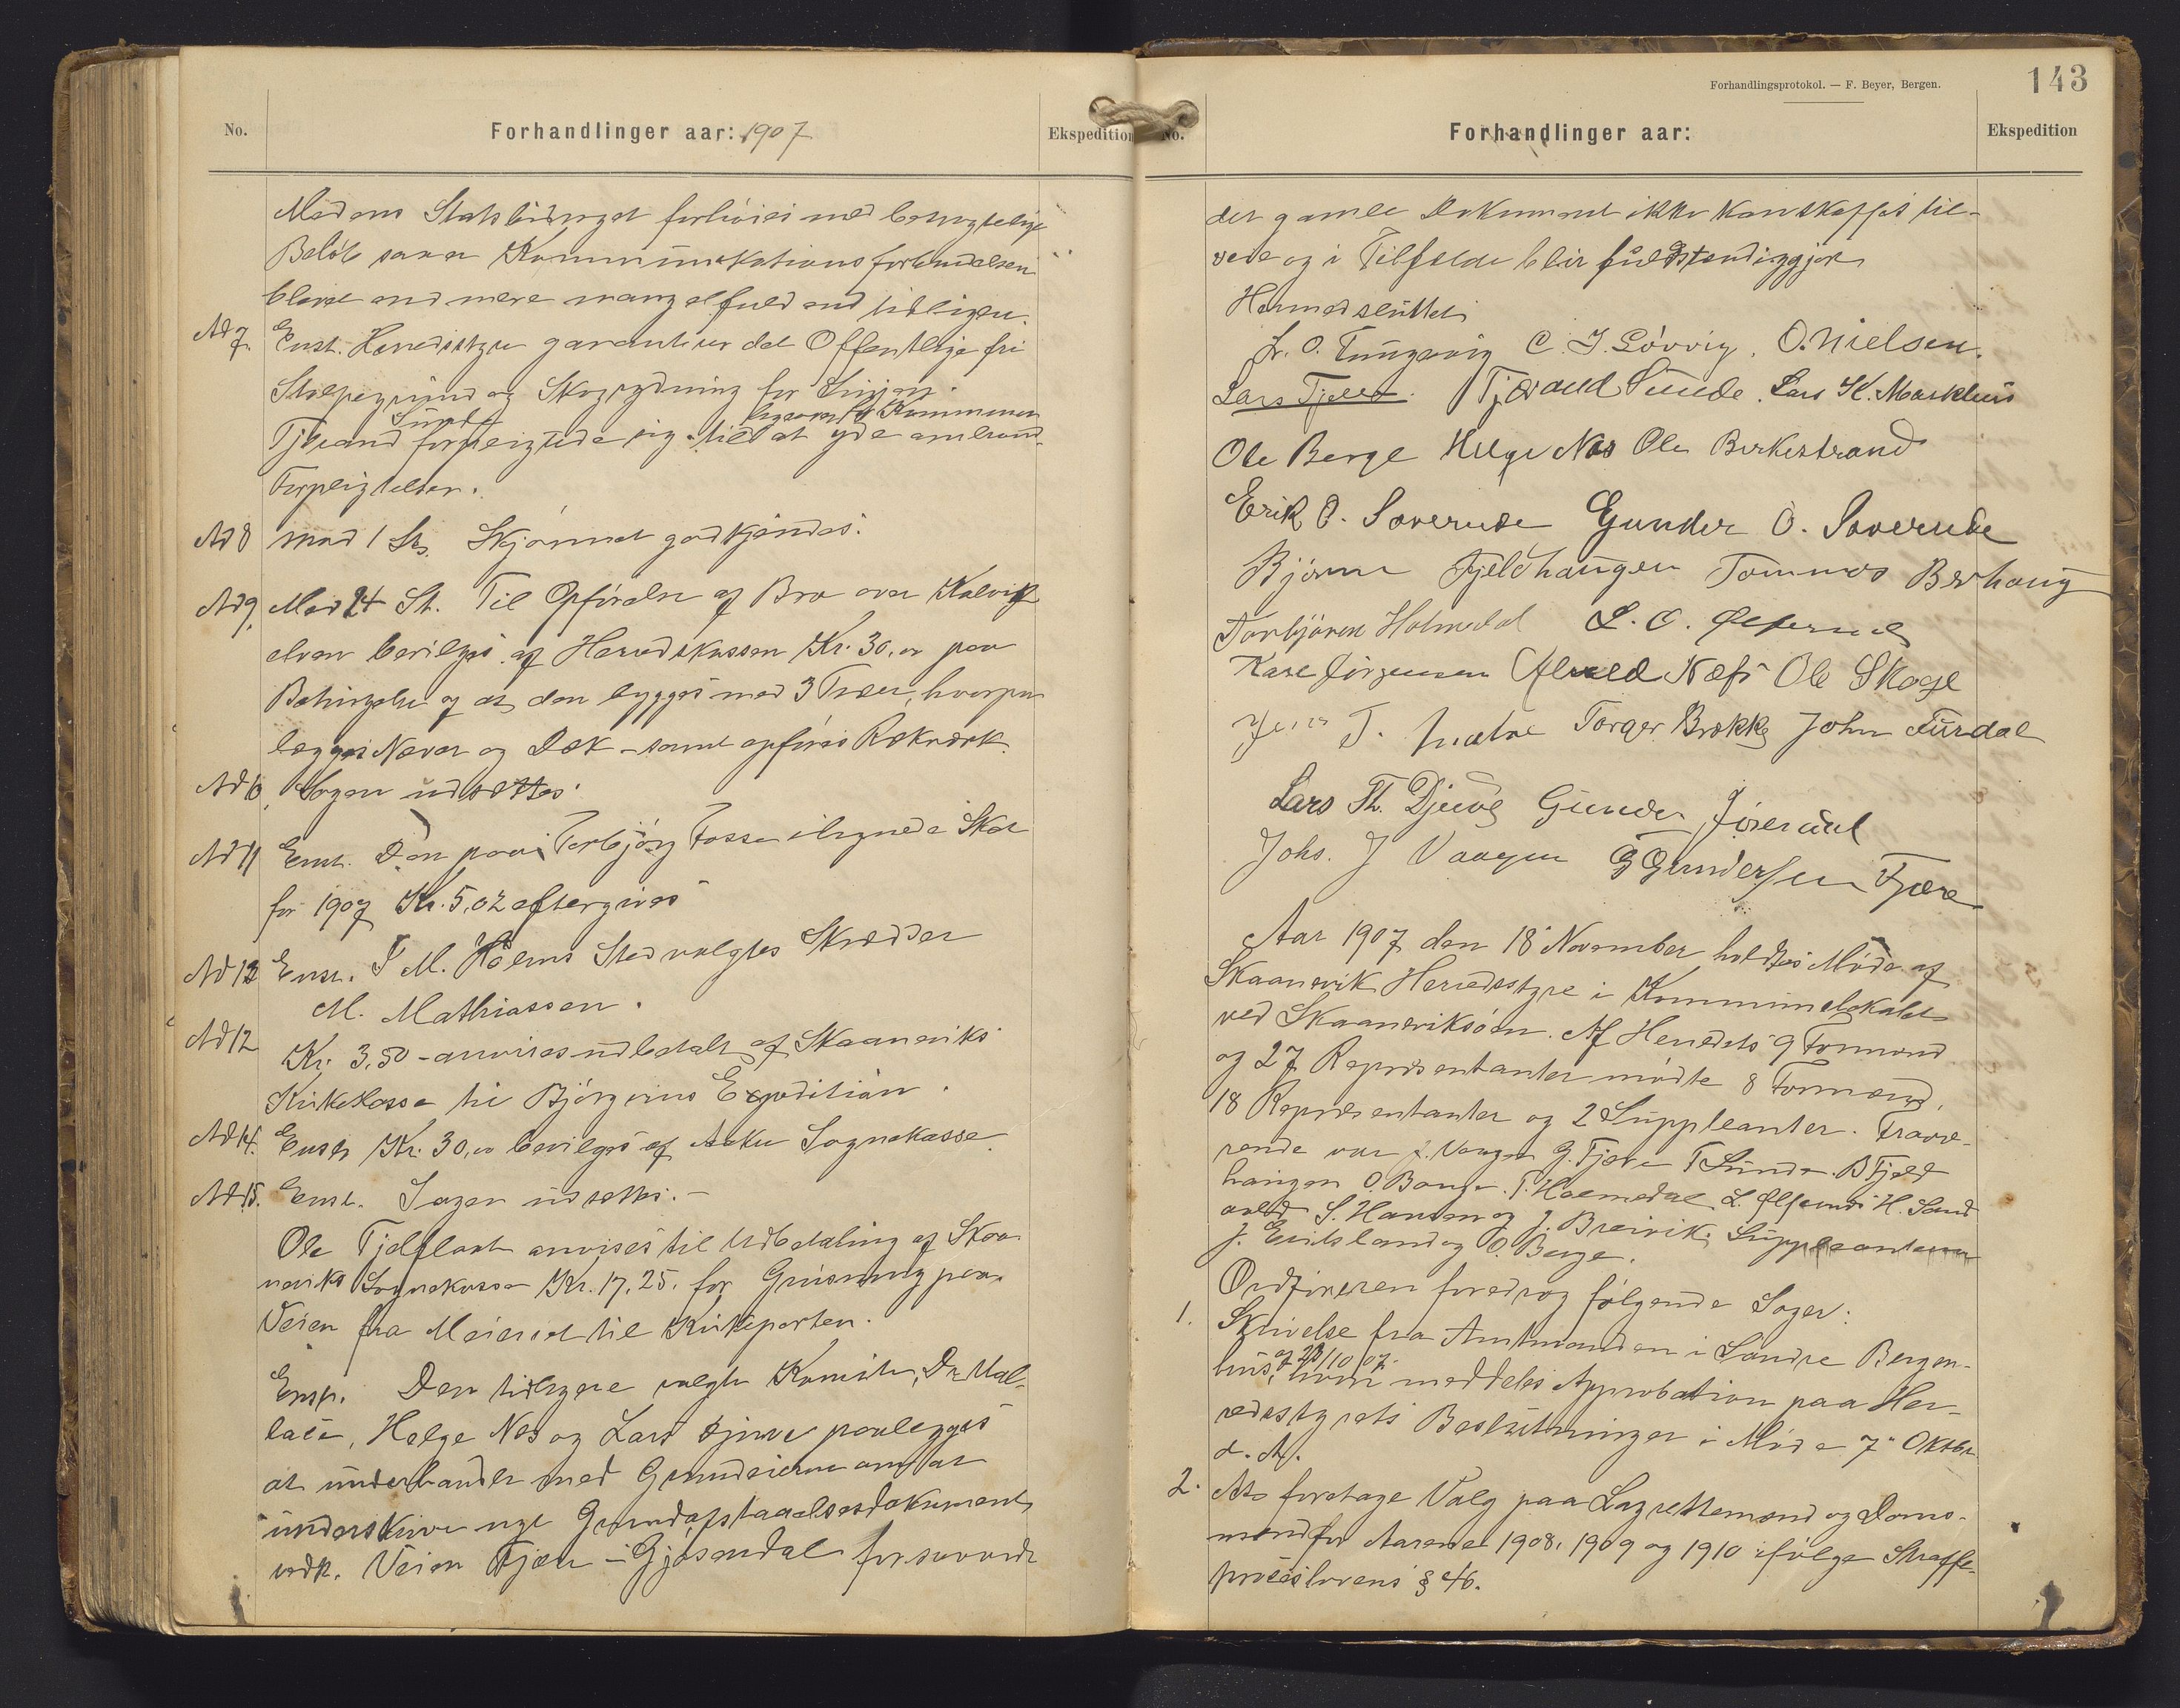 No.
Forhandlinger aar: 1907
Ekspedition
Medens Statsbidraget forhøies med betragtelige
Beløb saa er Kommunikationsforbindelsen
blevet end mere mangelfuld end tidligere.
Ad 7. Enst. Herredsstyre garanterer det Offentlige fri
Stolpegrund og Skogrydning for Linjen.
Sunde ligeoverfor Kommunen
Tjerand forpligtede sig til at yde omhand.
Forpligtelser.
Ad 8 mod 1 St. Skjønnet godkjendes.
Ad 9. Mod 24 St. Til Opførelse af Bro over Kalvik
elven bevilges af Herredskassen Kr. 30,00 paa
Betingelse af at den bygges med 3 Træer, hvorpaa
lægges Never og Dæk – samt opføres Rækværk.
Ad 10. Sagen udsættes.
Ad 11 Enst. Den paa Torbjørg Fosse ilignede Skat
for 1907 Kr. 5,02 eftergives
Ad 13 Enst. I M. Holms Sted valgtes Skrædder
M. Mathiassen.
Ad 12 Kr. 3,50 – anvises udbetalt af Skaaneviks
Kirkekasse til Bjørgvins Expedition.
Ad 14. Enst. Kr. 30,00 bevilges af Aakre Sognekasse.
Ad 15. Enst. Sagen udsættes. –
Ole Tjelflaat anvises til Udbetaling af Skaa
neviks Sognekasse Kr. 17,25. for Grusning paa
Veien fra Meieriet til Kirkeporten.
Enst. Den tidligere valgte Komite, Dr. Mal-
laus, Helge Nes og Lars Djuve paalegges
at underhandle med Grundeierne om at
underskrive nye Grundafstaaelsesdokument
vedk. Veien Fjæra – Gjøsendal forsaavidt
Forhandlingsprotokol. — F. Beyer, Bergen.
143
No.
Forhandlinger aar:
Ekspedition
det gamle Dokument ikke kan skaffes til-
veie og i Tilfælde blir fuldstændiggjort
Hermed sluttet
Dr. O. Tungesvig C. J. Løvvig, O. Nielsen.
Lars Tjelle. Tjerand Sunde. Lars K. Markhus
Ole Berge Helge Nes Ole Birkestrand
Erik O. Sæverude Gunder O. Sæverude
Bjørne Fjeldhaugen Tommes Berhaug
Torbjøren Holmedal L. O. Ølfernes
Kare Jørgensen Alvald Næss Ole Skoge
Jens T. Matre Torger Brekke John Aurdal
Lars Th. Djuve Gunder
Johs. J Vaagen G Gundersen Fjære
Aar 1907 den 18 November holdtes Møde af
Skaanevik Herredsstyre i Kommunelokalet
ved Skaaneviksøen. Af Herredets 9 Formænd
og 27 Repræsentanter mødte 8 Formænd,
18 Repræsentanter og 2 Suppleanter. Fravæ-
rende var J. Vaagen G. Fjære T Sunde. B Fjeld
haugen O. Bauge. T. Holmedal L. Ølfernes H. Sand
vold S. Hansen og J. Breivik. Suppleanterne
J. Eritsland og O. Berge.
Ordføreren foredrog følgende Sager:
1. Skrivelse fra Amtmanden i Søndre Bergen-
hus, af 23/10 07. hvori meddeles Approbation paa Her-
redsstyrets Beslutninger i Møde 7de Oktbr.
d. A.
2. At foretage Valg paa Lagrettemænd og Doms-
mænd for Aarene 1908, 1909 og 1910 ifølge Straffe-
proceslovens § 46.